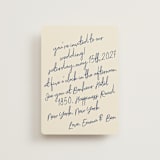 you're invited to our
wedding!
saturday, may 15th, 2027
at five o'clock in the afternoon
see you at Bonham Hotel
1850, Happiness Road
New York, New York
Love, Emma & Ben